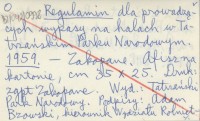 Regulamin dla prowadzą-
cych wypasy na halach w Ta-
trzańskim Parku Narodowym.
1959. - Zakopane. Afisz na
kartonie, cm 35 x 25. Druk.
zapt. Zakopane. Wyd. Tatrzański
Park Narodowy. Podpisy: Adam
Bzowski, kierownik Wydziału Rolnict-